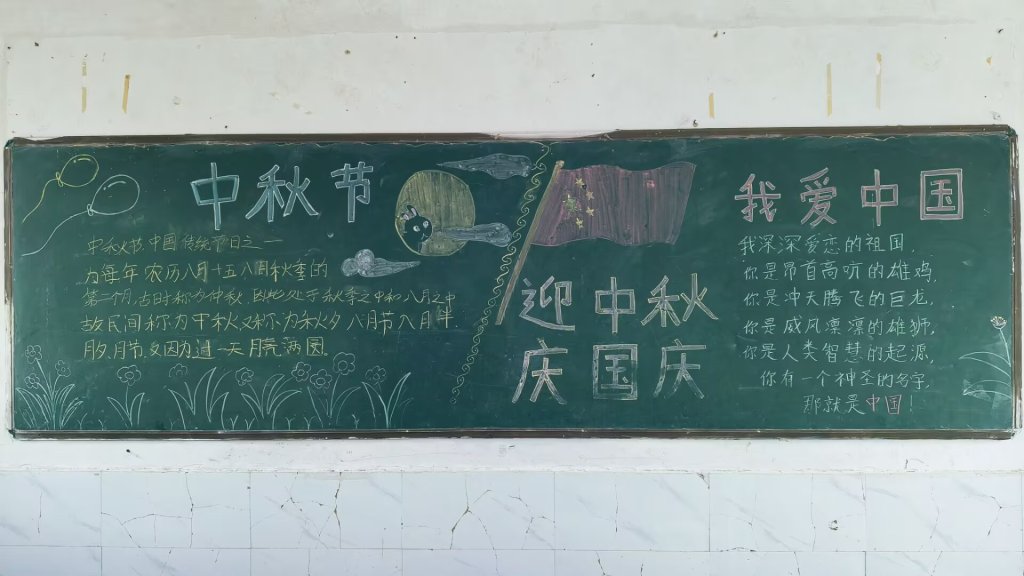 中秋节
中秋节中国传统节日之一
为每年农历八月十五八周秋季的
第二个月,古时称为仲秋,因此处于秋季之中和八月之中
故民间称为中秋又称为秋夕八月节八月半
月夕,月节,又因为这一天月亮满圆。
迎中秋
庆国庆
我爱中国
我深深爱恋的祖国,
你是昂首高吭的雄鸡,
你是冲天腾飞的巨龙,
你是威风凛凛的雄狮,
你是人类智慧的起源,
你有一个神圣的名字,
那就是中国!